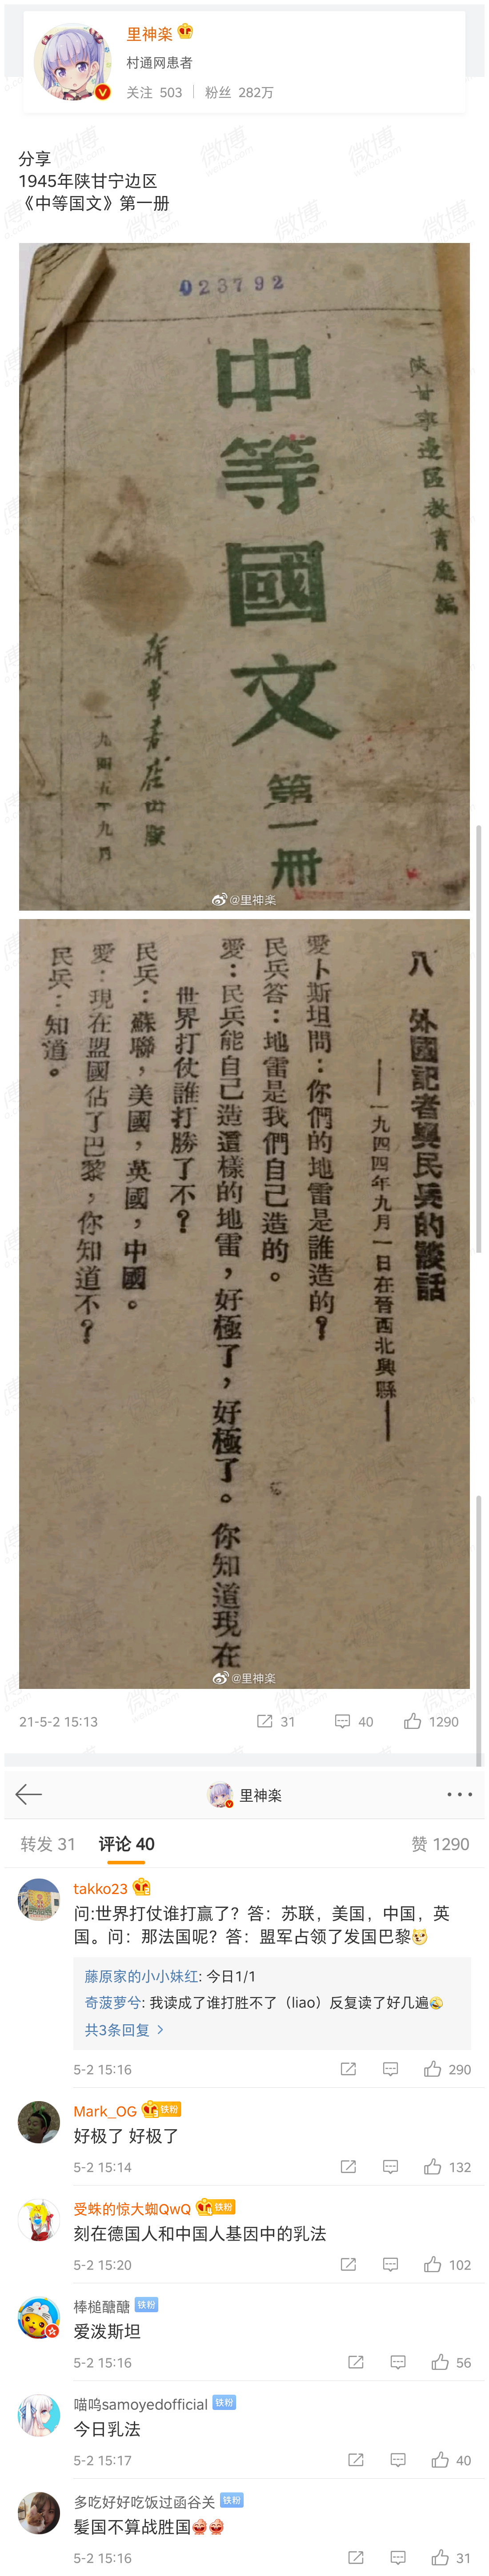 里神楽
村通网患者
关注 503 粉丝 282万
分享
1945年陕甘宁边区
《中等国文》第一册
023792
陝甘寧邊區教育廳編
中等國文
第一冊
新華書店出版
一九四五年九月
@里神楽
八 外國記者與民兵的談話
——一九四四年九月一日在晉西北興縣——
愛卜斯坦問：你們的地雷是誰造的？
民兵答：地雷是我們自己造的。
愛：民兵能自己造這樣的地雷，好極了，好極了。你知道現在
世界打仗誰打勝了不？
民兵：蘇聯，美國，英國，中國。
愛：現在盟國佔了巴黎，你知道不？
民兵：知道。
@里神楽
21-5-2 15:13 31 40 1290
里神楽
转发 31 评论 40 赞 1290
takko23
问:世界打仗谁打赢了？答：苏联，美国，中国，英
国。问：那法国呢？答：盟军占领了发国巴黎
藤原家的小小妹红: 今日1/1
奇菠萝兮: 我读成了谁打胜不了（liao）反复读了好几遍
共3条回复 >
5-2 15:16 290
Mark_OG 铁粉
好极了 好极了
5-2 15:14 132
受蛛的惊大蜘QwQ 铁粉
刻在德国人和中国人基因中的乳法
5-2 15:20 102
棒槌醣醣 铁粉
爱泼斯坦
5-2 15:16 56
喵呜samoyedofficial 铁粉
今日乳法
5-2 15:17 40
多吃好好吃饭过函谷关 铁粉
髪国不算战胜国
5-2 15:16 31